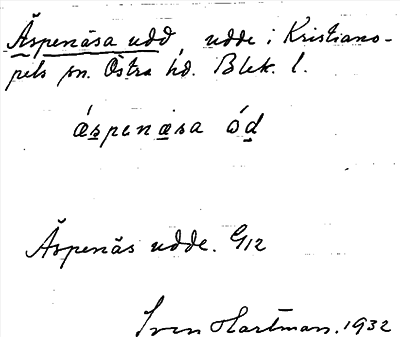 Äspenäsa udd, udde i Kristiano-
pels sn. Östra hd. Blek. l.
áspenasa ód
Äspenäs udde. G12
Sven Hartman. 1932